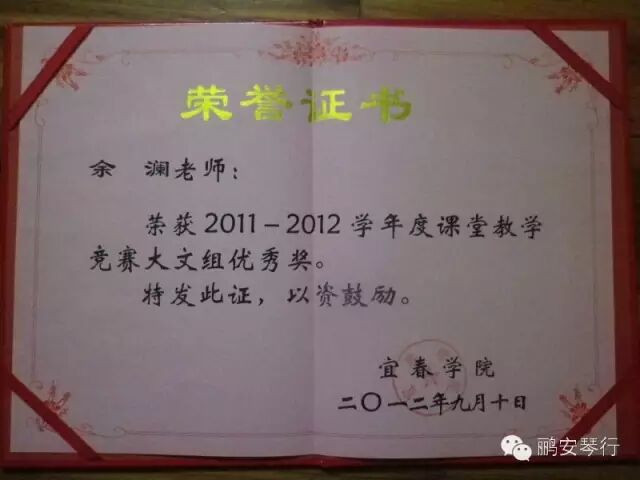 荣誉证书
余 澜老师：
荣获2011-2012学年度课堂教学
竞赛大文组优秀奖。
特发此证，以资鼓励。
宜春学院
二〇一二年九月十日
鹏安琴行